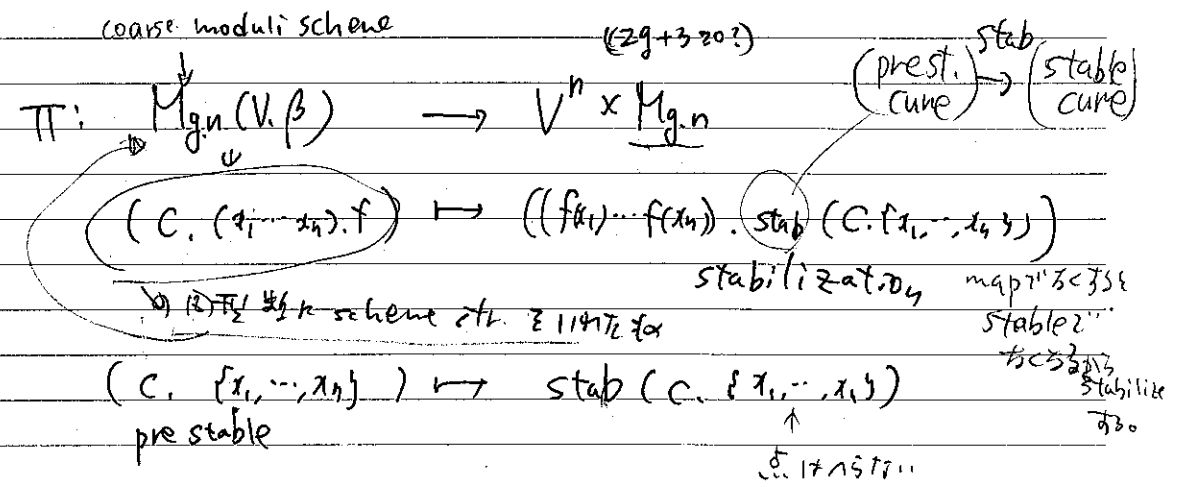 coarse moduli scheme
(2g+3≥0?)
(prest. cure) →stab (stable cure)
π: M_{g.n}(V.β) → V^n × M_{g.n}
(C. (x_1 ... x_n). f) ↦ ((f(x_1) ... f(x_n)). stab (C. {x_1, .., x_n}))
stabilization
mapでなくすると
stableで...
なくなるから
stabilize
する。
scheme
(C. {x_1, ..., x_n}) ↦ stab (C. {x_1, .., x_n})
pre stable
↑
点はへらない